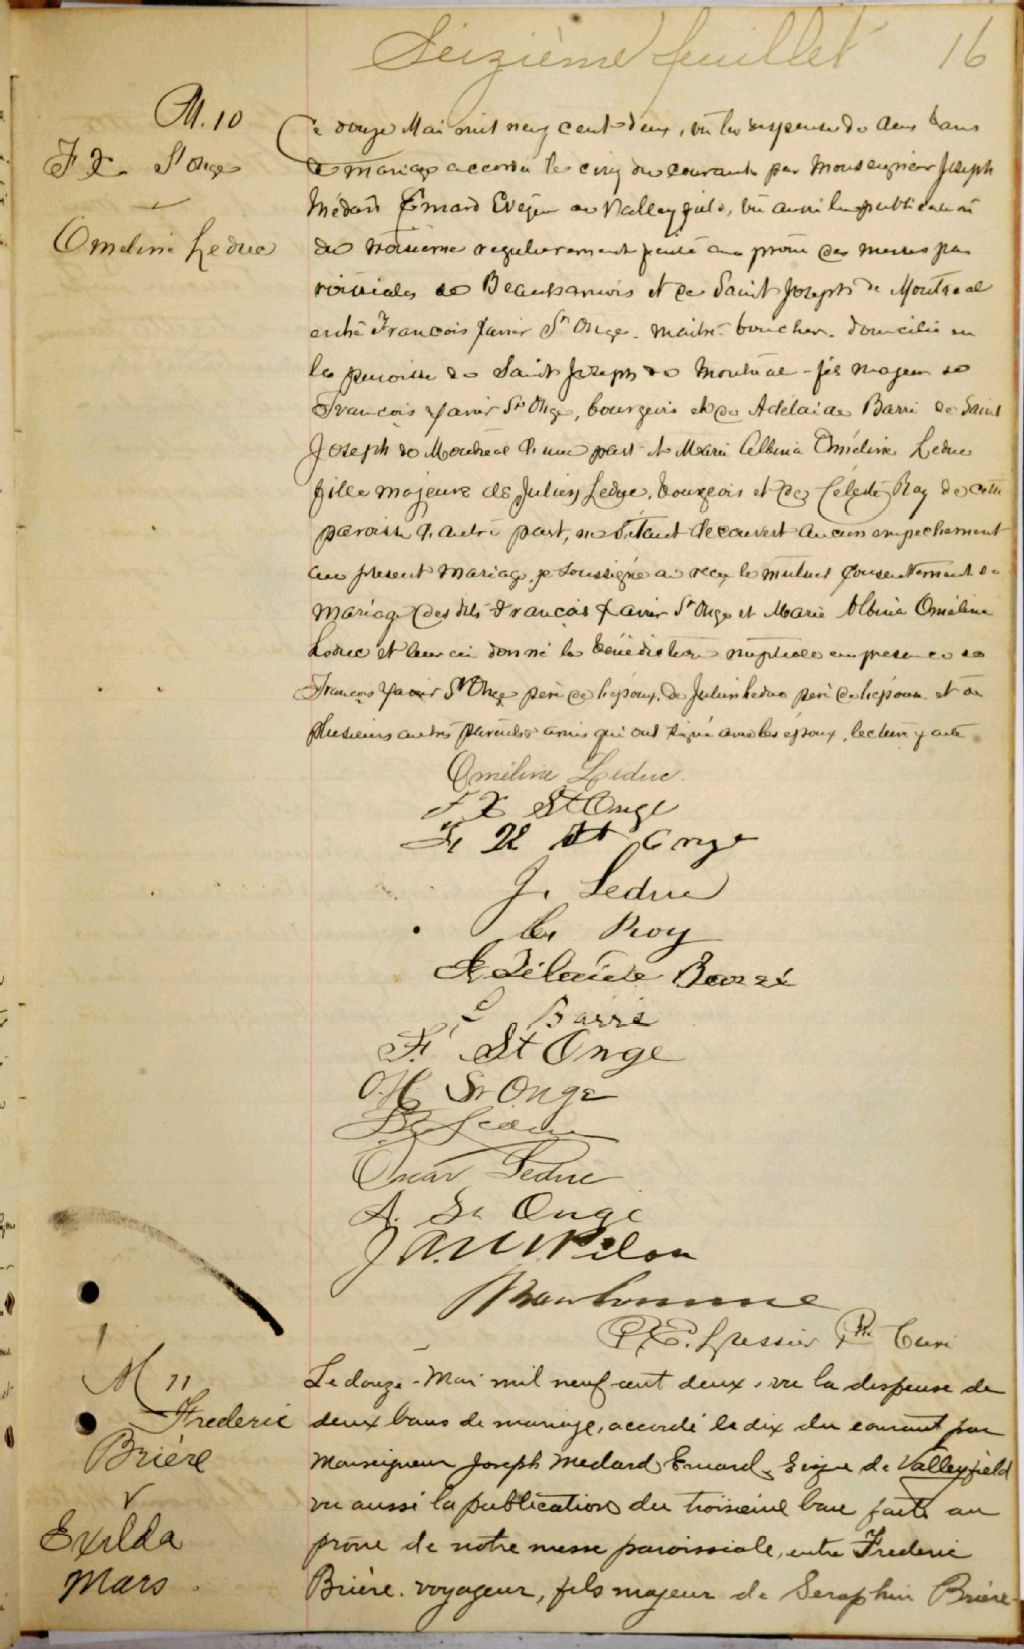 Seizième feuillet 16
M. 10
F X St Onge
Oméline Leduc
Ce douze Mai mil neuf cent deux, vu la dispense de deux bans
de mariage accordée le cinq du courant par Monseigneur Joseph
Médard Emard Evêque de Valleyfield, vu aussi la publication
du troisième régulièrement faite au prône des messes pa
roissiales de Beauharnois et de Saint Joseph de Montréal
entre François Xavier St Onge, maître-boucher, domicilié en
la paroisse de Saint Joseph de Montréal fils majeur de
François Xavier St Onge, bourgeois et de Adélaide Barré de Saint
Joseph de Montréal d'une part et Marie Albina Oméline Leduc
fille majeure de Julien Leduc, bourgeois et de Céleste Roy de cette
paroisse d'autre part, ne s'étant découvert aucun empêchement
au présent mariage, je soussigné ai reçu le mutuel consentement de
mariage des dits François Xavier St Onge et Marie Albina Oméline
Leduc et leur ai donné la bénédiction nuptiale en présence de
François Xavier St Onge père de l'époux, de Julien Leduc père de l'épouse et de
plusieurs autres parents amis qui ont signé avec les époux, lecture faite
Oméline Leduc.
F X St Onge
F X St Onge
J. Leduc
Roy
Adélaide Barré
Barré
F. St Onge
O. H. St Onge
Leduc
Oscar Leduc
A. St Onge
Pilon
P. E. Lussier Ptre Curé
M 11
Frederic
Brière
Exilda
Mars
Le douze Mai mil neuf cent deux, vu la dispense de
deux bans de mariage, accordé le dix du courant par
Monseigneur Joseph Medard Emard, Evêque de Valleyfield
vu aussi la publication du troisième ban faite au
prône de notre messe paroissiale, entre Frederic
Brière, voyageur, fils majeur de Seraphin Brière